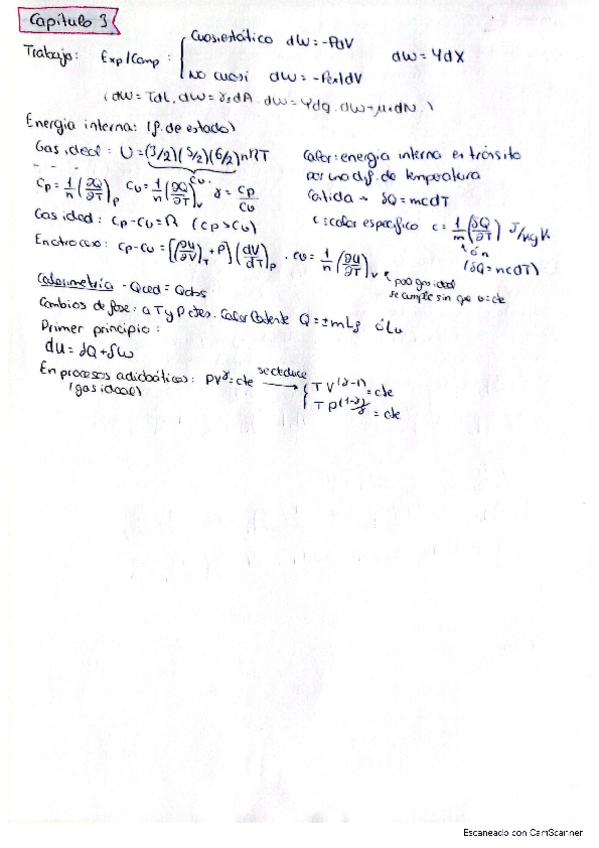 Capítulo 3
Trabajo: Exp/Comp: { Cuasiestático dW = -PdV
dW = YdX
No cuasi dW = -PextdV
(dW = TdL, dW = γsdA, dW = φdq, dW = μ·dN)
Energía interna: (f. de estado)
Gas ideal: U = (3/2)(5/2)(6/2)nRT
Cv
Calor: energía interna en tránsito
por una dif. de temperatura
Cp = 1/n (∂Q/∂T)p Cv = 1/n (∂Q/∂T)v γ = Cp/Cv
Cedida → δQ = mcdT
Gas ideal: Cp - Cv = R (Cp > Cv)
c: calor específico c = 1/m (δQ/∂T) J/kgK
ó n
(δQ = ncdT)
En otro caso: Cp - Cv = [(∂U/∂V)T + P] (dV/dT)p . Cv = 1/n (∂U/∂T)v
para gas ideal
se cumple sin que v = cte
Calorimetría - Qced = Qabs
Cambios de fase: a T y P ctes. Calor latente Q = ±mLf ó Lv
Primer principio:
dU = δQ + δW
En procesos adiabáticos: PVγ = cte se deduce → { TV(γ-1) = cte
(gas ideal)
TP(1-γ)/γ = cte
Escaneado con CamScanner